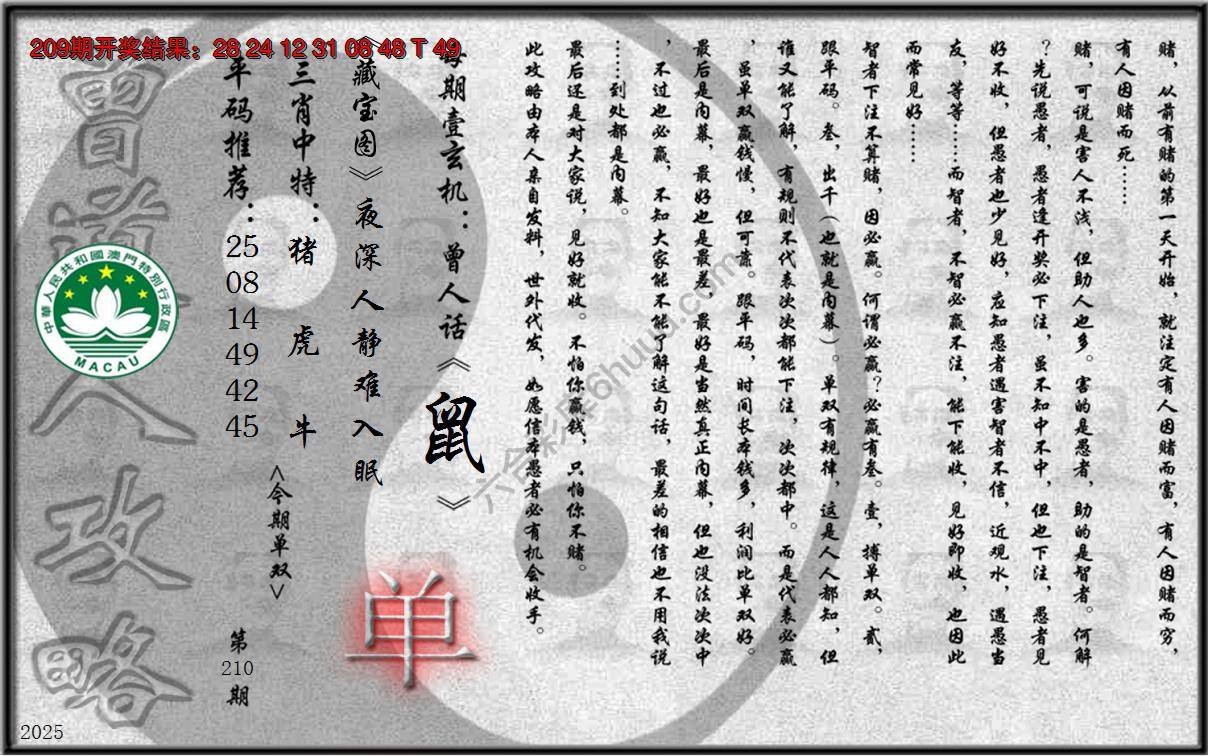 209期开奖结果：28 24 12 31 08 48 T 49
赌，从前有赌的第一天开始，就注定有人因赌而富，有人因赌而穷，
有人因赌而死……
赌，可说是害人不浅，但助人也多。害的是愚者，助的是智者。何解
？先说愚者，愚者逢开奖必下注，虽不知中不中，但也下注，愚者见
好不收，但愚者也少见好，应知愚者遇害智者不信，近观水，遇愚当
友，等等……而智者，不智必赢不注，能下能收，见好即收，也因此
而常见好……
智者下注不算赌，因必赢。何谓必赢？必赢有叁。壹，搏单双。贰，
跟平码。叁，出千（也就是内幕）。单双有规律，这是人人都知，但
谁又能了解，有规则不代表次次都能下注，次次都中。而是代表必赢
，虽单双赢钱慢，但可靠。跟平码，时间长本钱多，利润比单双好。
最后是内幕，最好也是最差，最好是当然真正内幕，但也没法次次中
，不过也必赢，不知大家能不能了解这句话，最差的相信也不用我说
……到处都是内幕。
最后还是对大家说，见好就收。不怕你赢钱，只怕你不赌。
此攻略由本人亲自发料，世外代发，如愿信本愚者必有机会收手。
每期壹玄机：曾人话《鼠》
《藏宝图》夜深人静难入眠
三肖中特：猪 虎 牛
<今期单双>
单
平码推荐：25 08 14 49 42 45
第210期
曾道人攻略
中華人民共和國澳門特別行政區
MACAU
2025